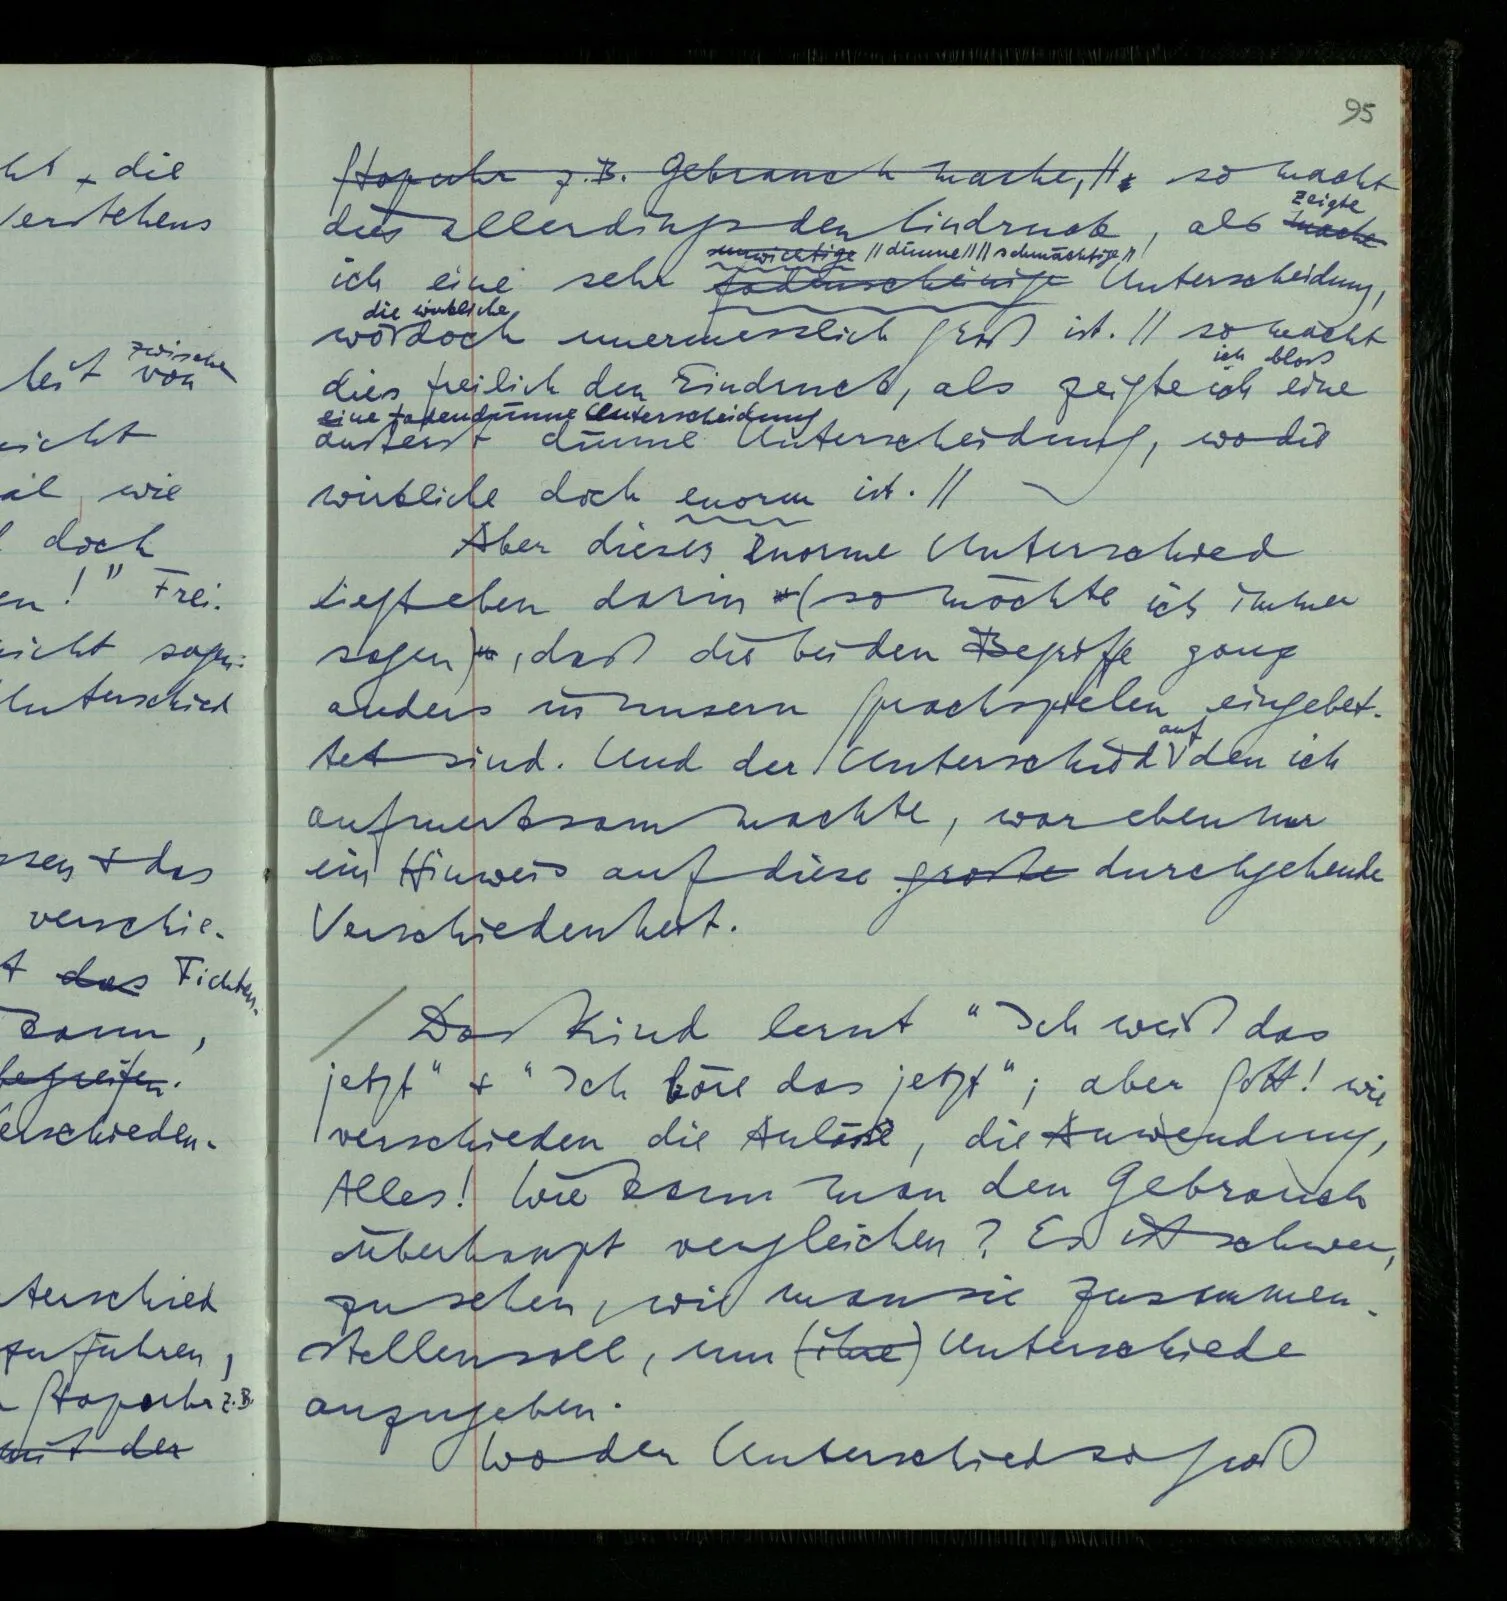 ht, die
Verstehens
heit zwischen von
nicht
wie
doch
en!" Frei-
nicht sagen:
Unterschied
& das
verschie-
t das Fichten-
kann,
begreifen.
erschieden-
terschied
zuführen,
Stopuhr z.B.
mit der
95
Stopuhr z.B. Gebrauch mache, // so macht
zeigte
dies allerdings den Eindruck, als mache
unwichtige // dünne // // schmächtige //
ich eine sehr fadenscheinige Unterscheidung,
die wirkliche
wo doch unermesslich groß ist. // so macht
ich bloss
dies freilich den Eindruck, als zeigte ich eine
eine fadendünne Unterscheidung
äußerst dünne Unterscheidung, wo die
wirkliche doch enorm ist. //
Aber dieser enorme Unterschied
liegt eben darin (so möchte ich immer
sagen), daß die beiden Begriffe ganz
anders in unsern Sprachspielen eingebet-
auf
tet sind. Und der Unterschied den ich
aufmerksam machte, war eben nur
ein Hinweis auf diese große durchgehende
Verschiedenheit.
Das Kind lernt "Ich weiß das
jetzt" & "Ich höre das jetzt"; aber Gott! wie
verschieden die Anlässe, die Anwendung,
Alles! Wie kann man den Gebrauch
überhaupt vergleichen? Es ist schwer,
zu sehen, wie man sie zusammen-
stellen soll, um (ihre) Unterschiede
anzugeben.
Wo der Unterschied so groß